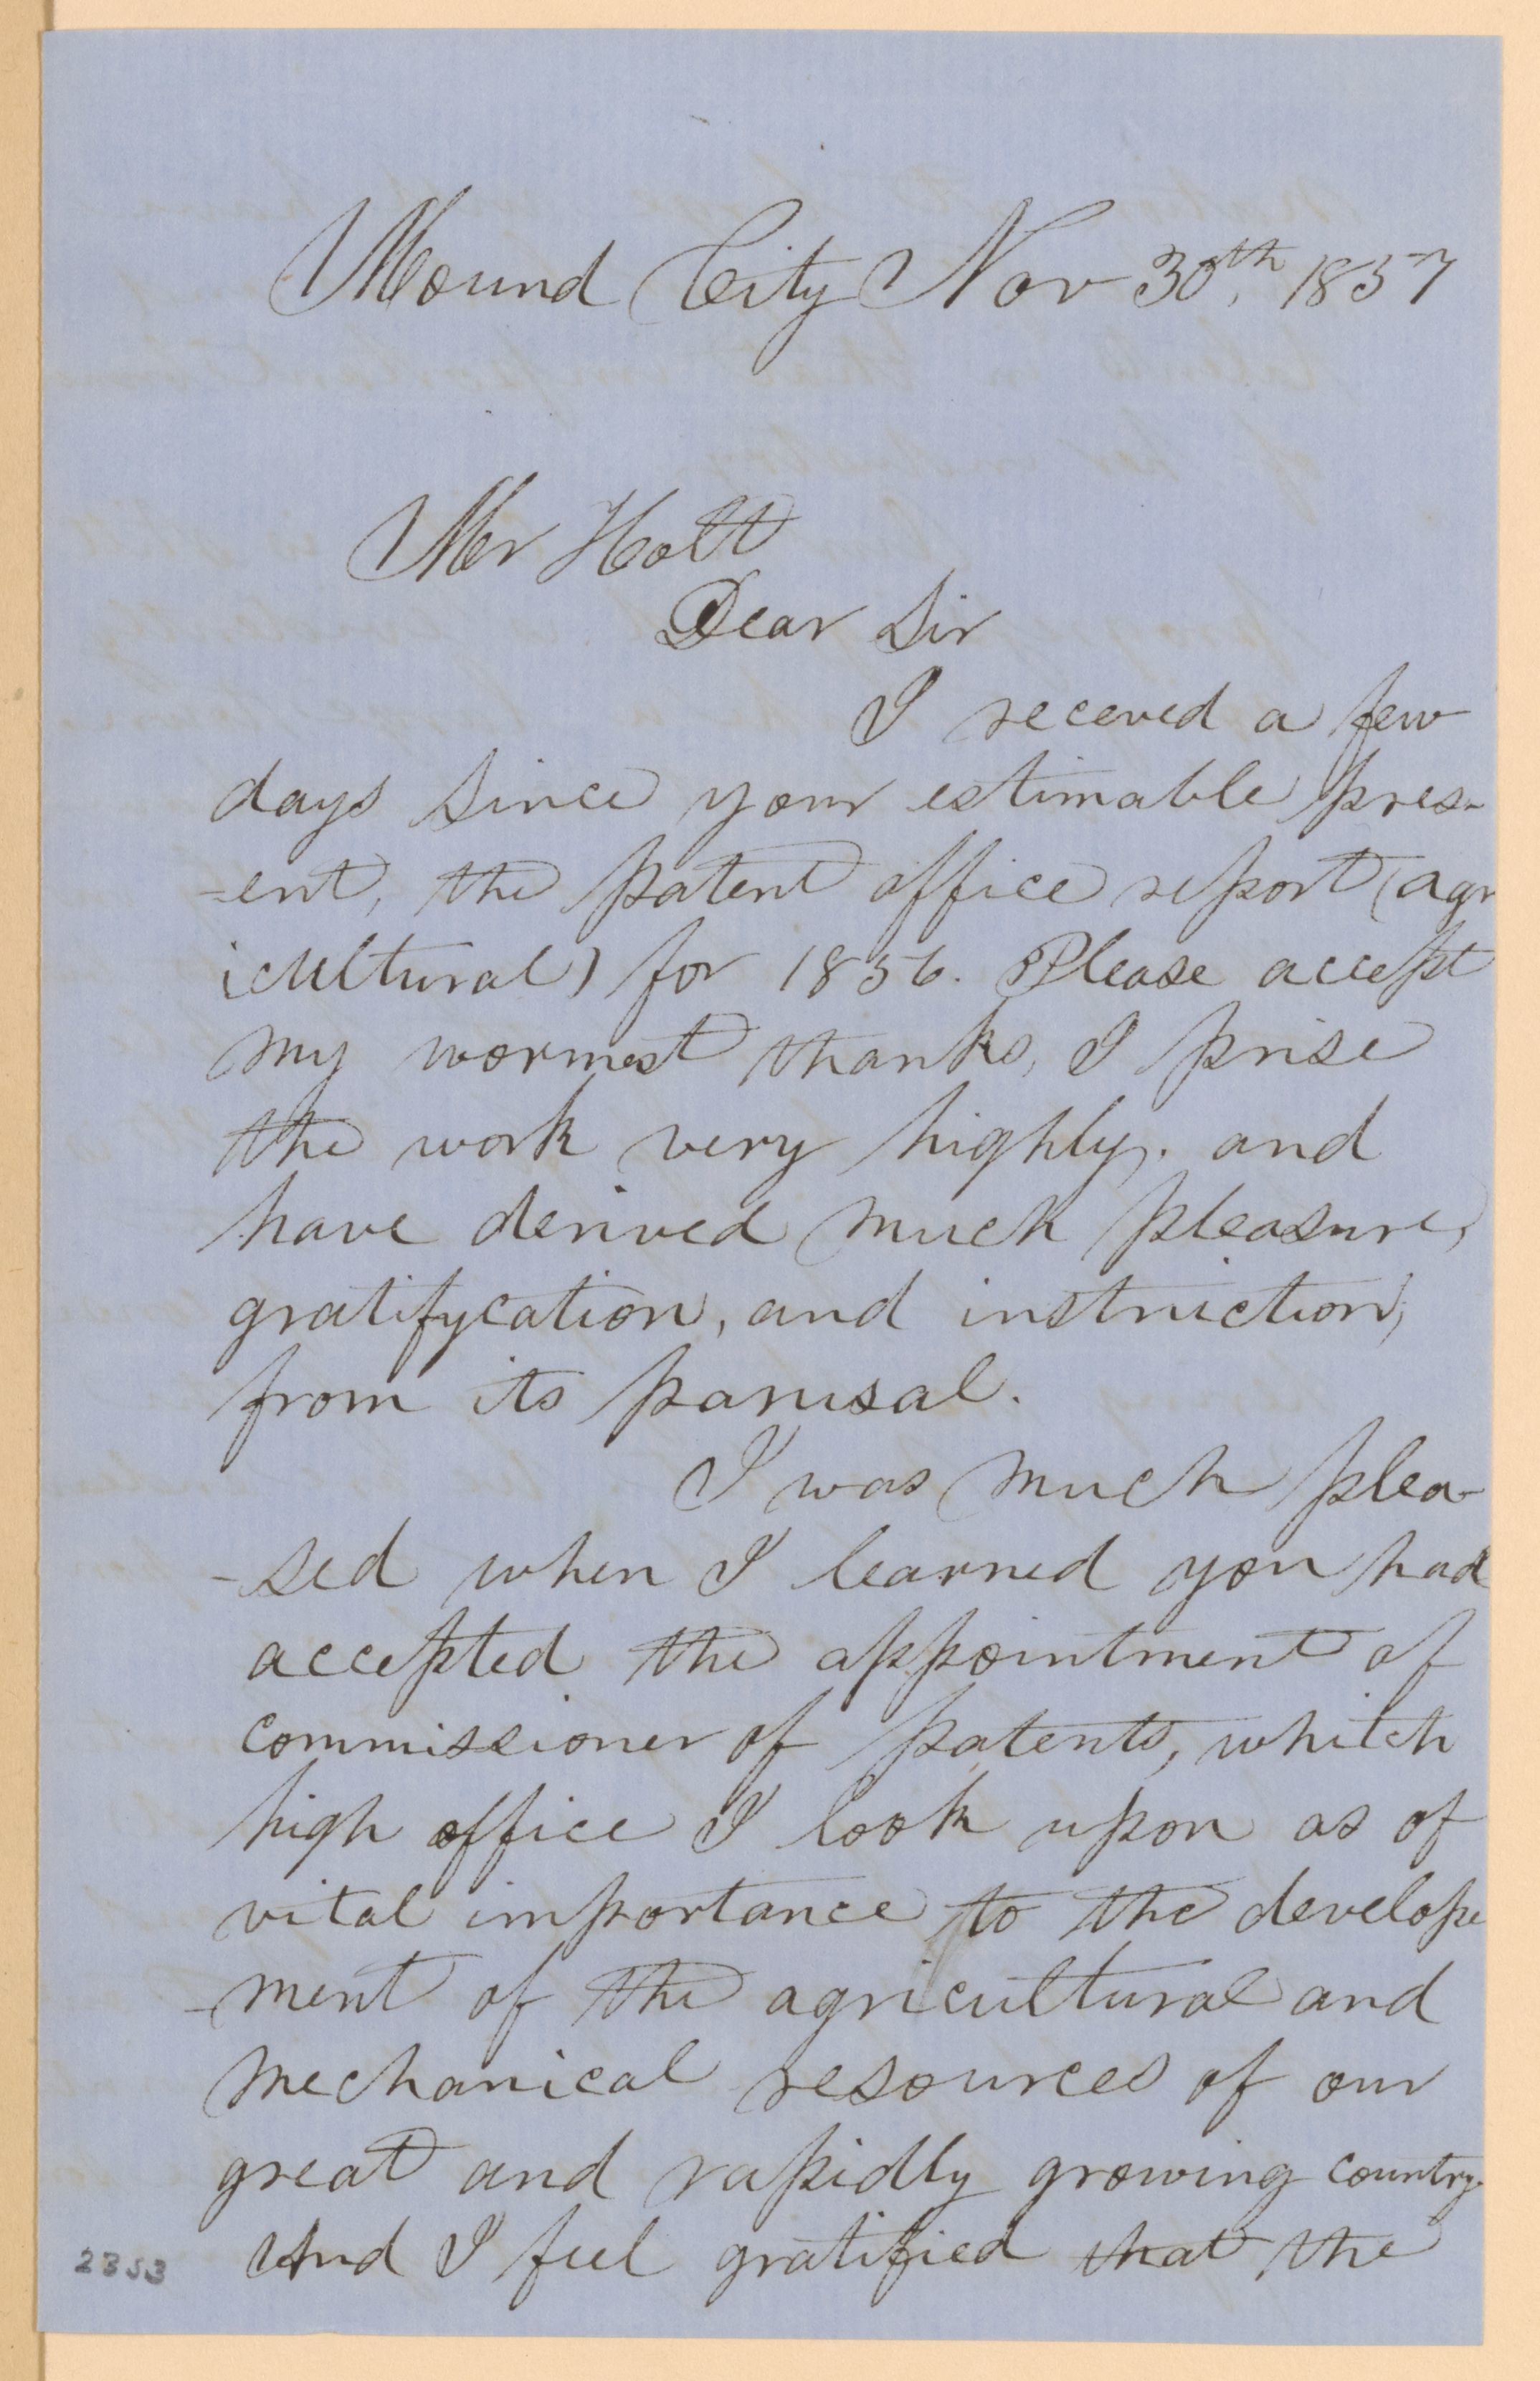 Mound City Nov 30th, 1857
Mr Holt
Dear Sir
I receved a few
days since your estimable pres-
-ent, the patent office report (agr
icultural) for 1856. Please accept
my wormest thanks, I prise
the work very highly. and
have derived much pleasure,
gratifycation, and instruction,
from its parusal.
I was much plea-
-sed when I learned you had
accepted the appointment of
commissioner of patents, whitch
high office I look upon as of
vital importance to the develope
-ment of the agricultural and
mechanical resources of our
great and rapidly growing country.
And I feel gratified that the
2353